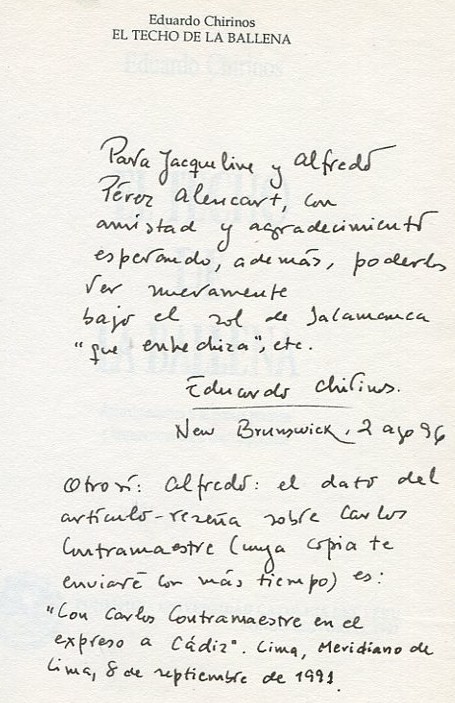 Eduardo Chirinos
EL TECHO DE LA BALLENA
Para Jacqueline y Alfredo
Pérez Alencart, con
amistad y agradecimiento
esperando, además, poderlos
ver nuevamente
bajo el sol de Salamanca
"que enhechiza", etc.
Eduardo Chirinos.
New Brunswick, 2 ago 96
Otrosí: Alfredo: el dato del
artículo-reseña sobre Carlos
Contramaestre (cuya copia te
enviaré con más tiempo) es:
"Con Carlos Contramaestre en el
expreso a Cádiz". Lima, Meridiano de
Lima, 8 de septiembre de 1991.